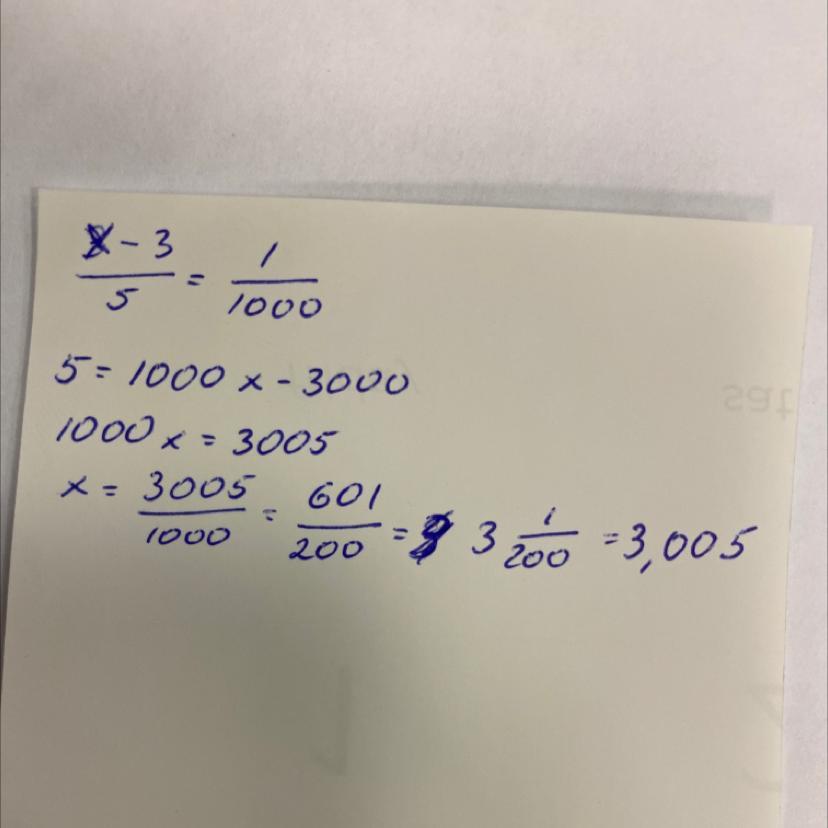 x - 3 / 5 = 1 / 1000
5 = 1000 x - 3000
1000 x = 3005
x = 3005 / 1000 = 601 / 200 = 3 1/200 = 3,005